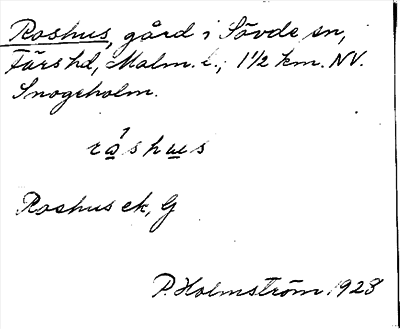 Roshus, gård i Sövde sn,
Färs hd, Malm. l., 1 1/2 km. NV.
Snogeholm.
rǻshus
Roshus ek, G
P. Holmström 1928